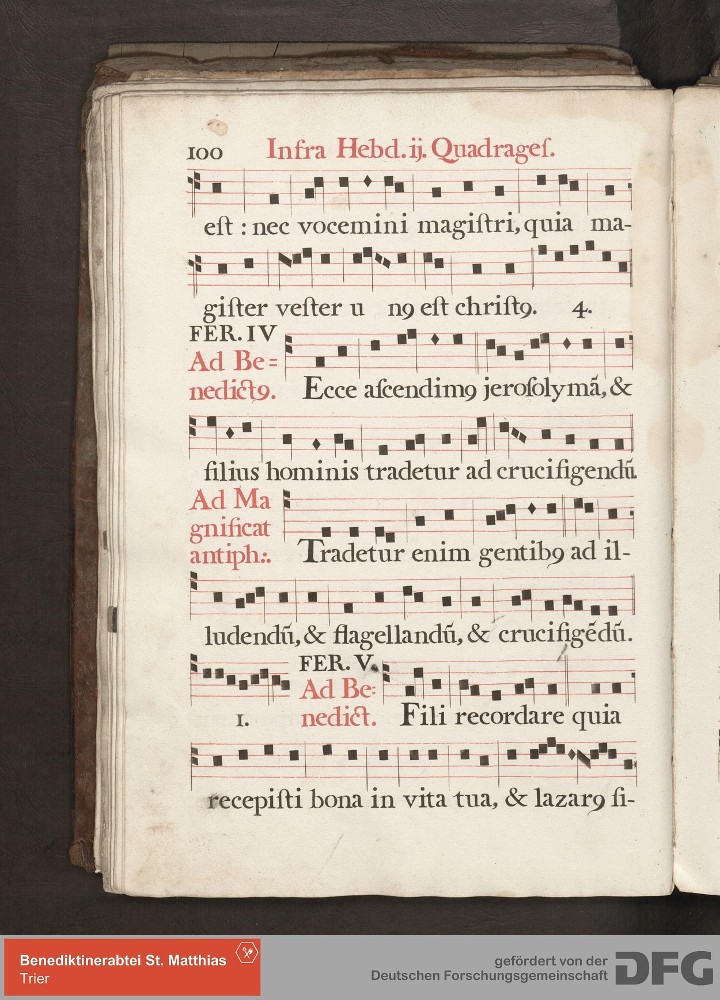 100 Infra Hebd. ij. Quadrageſ.
eſt : nec vocemini magiſtri, quia ma-
giſter veſter u nꝯ eſt chriſtꝯ. 4.
FER. IV
Ad Be=
nedictꝯ. Ecce aſcendimꝯ jeroſolymā, &
filius hominis tradetur ad crucifigendū.
Ad Ma
gnificat
antiph:. Tradetur enim gentibꝯ ad il-
ludendū, & flagellandū, & crucifigēdū.
FER. V.
Ad Be:
1. nedict. Fili recordare quia
recepiſti bona in vita tua, & lazarꝯ ſi-
Benediktinerabtei St. Matthias
Trier
gefördert von der
Deutschen Forschungsgemeinschaft DFG